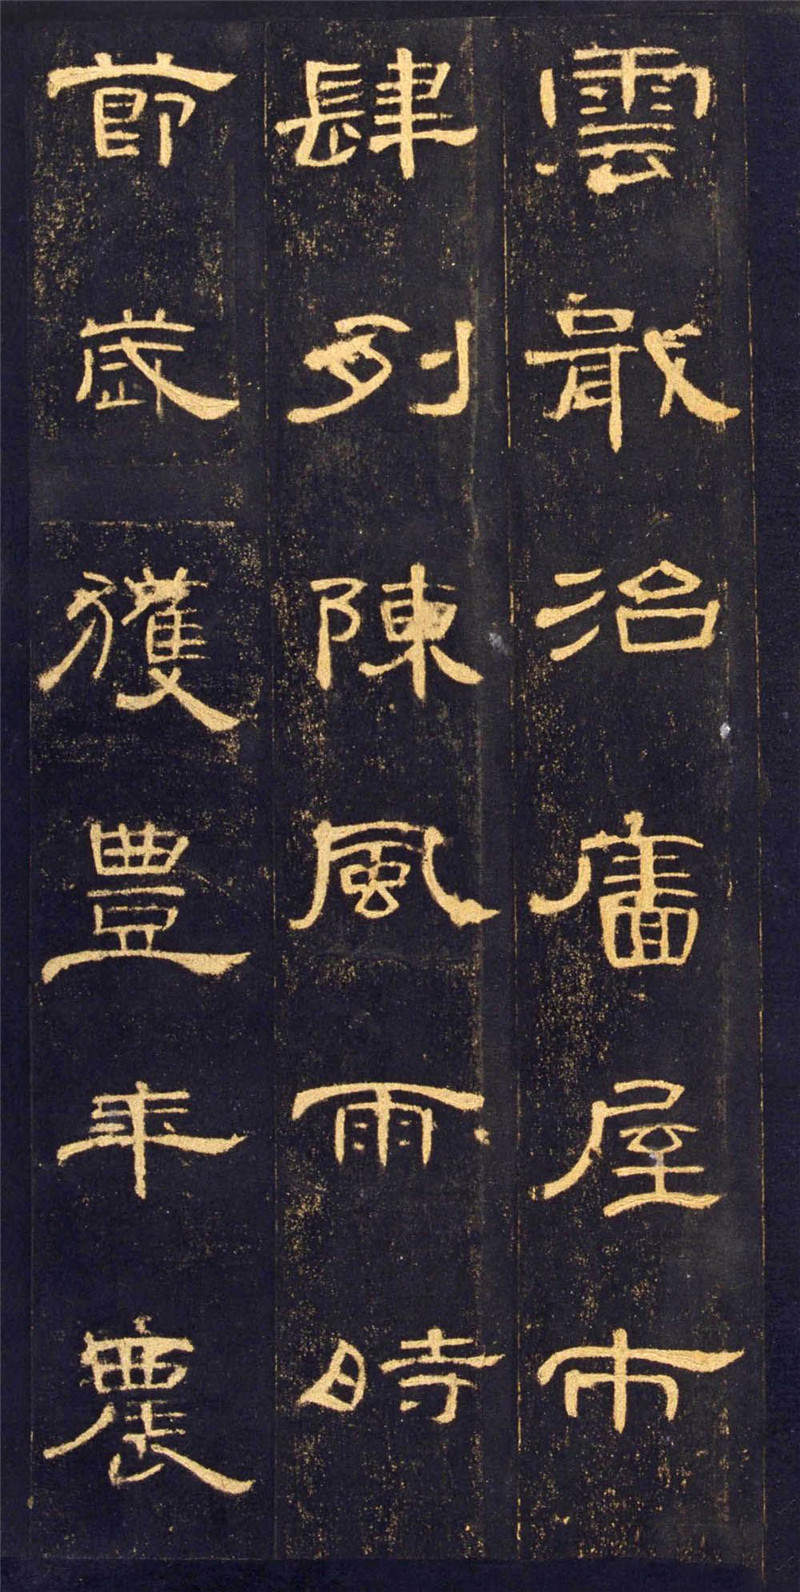 雲戢治廧屋市
肆列陳風雨時
節歲獲豊年農